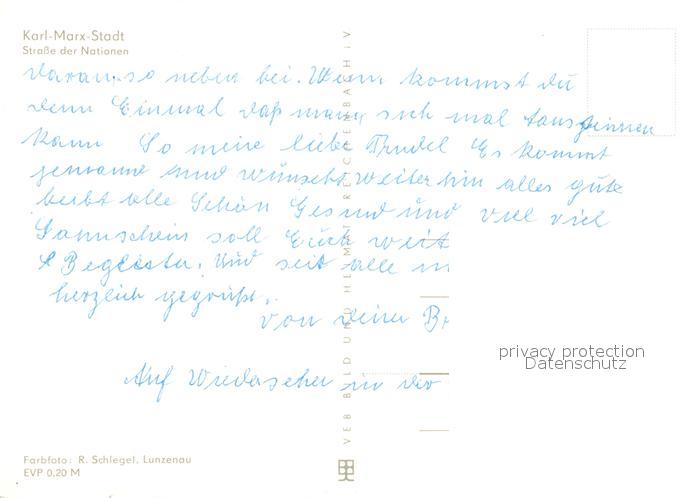 Karl-Marx-Stadt
Straße der Nationen
daran so neben bei. Wenn kommst du
denn Einmal daß mann sich mal
kann So meine liebe Trudel Es kommt
jemand und wünscht weiter hin alles gute
beibt alle Schön Gesund und viel viel
Sonnschein soll Euch weit
Und seit alle
herzlich gegrüßt.
von deiner
Auf Wiedasehen in der
VEB BILD UND HEIMAT REICHENBACH i V
privacy protection
Datenschutz
Farbfoto: R. Schlegel, Lunzenau
EVP 0,20 M